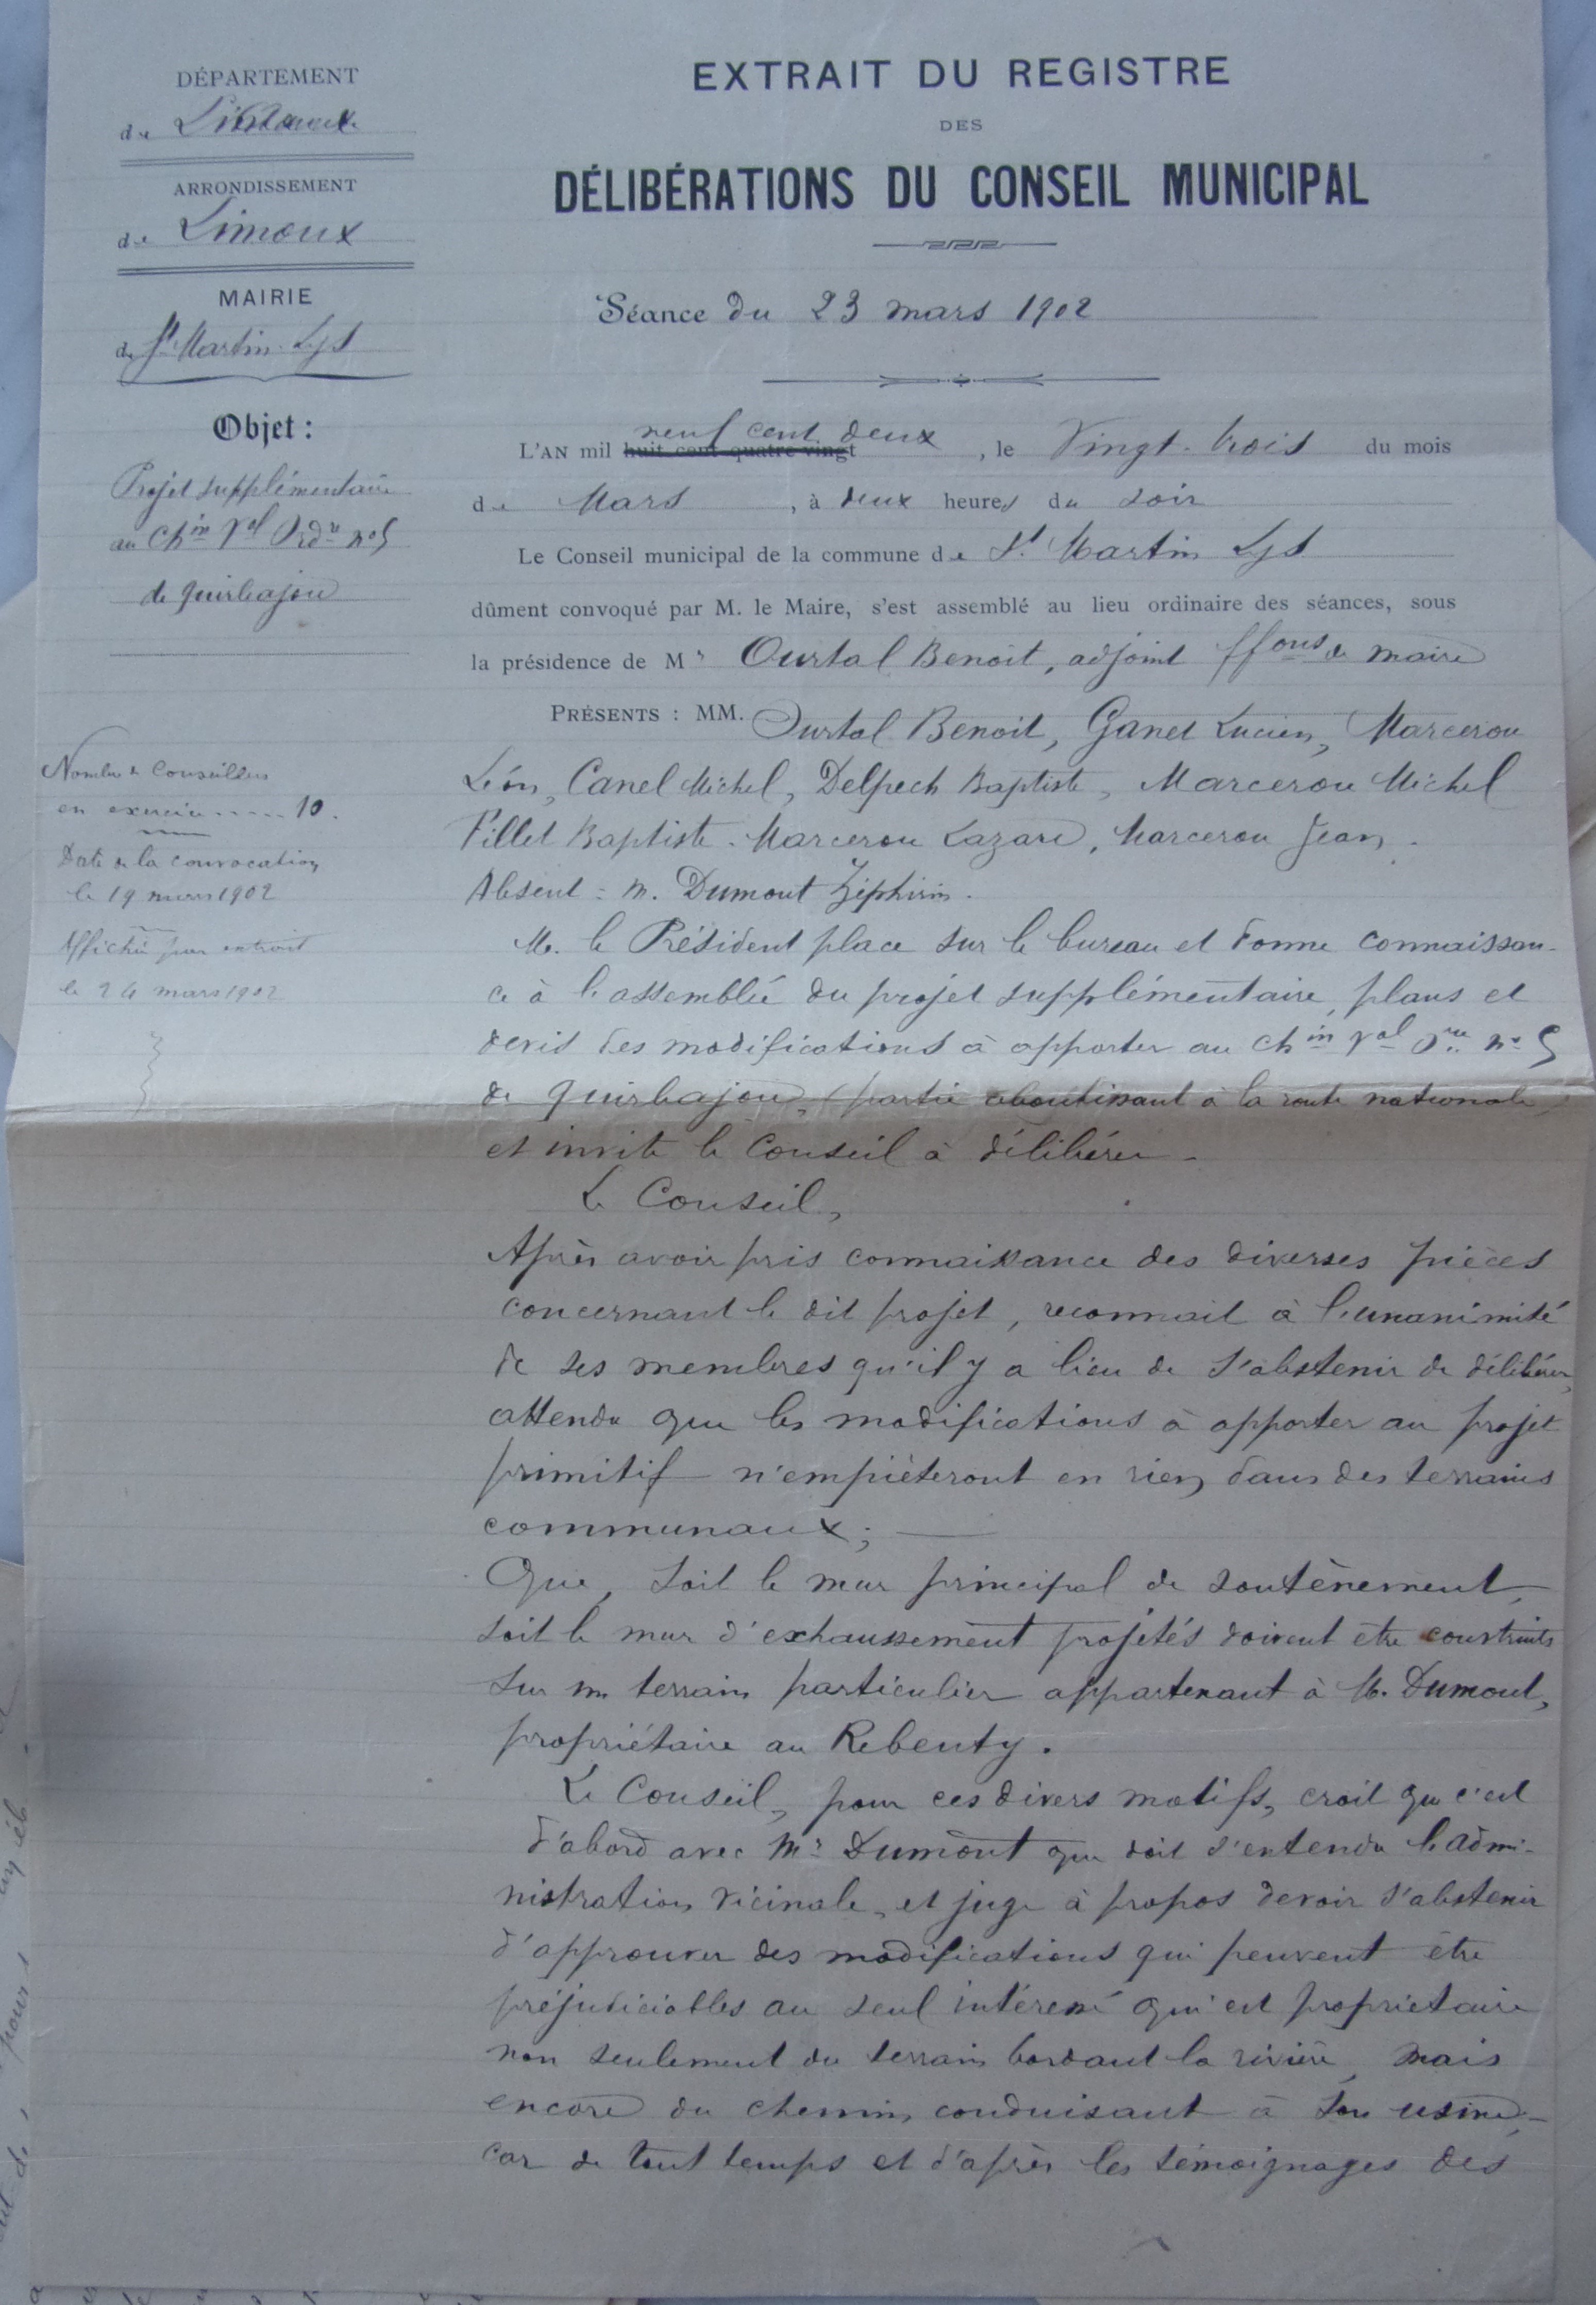 DÉPARTEMENT
de
ARRONDISSEMENT
de Limoux
MAIRIE
de St Martin-Lys
Objet :
Projet supplémentaire
au Chin Val Ordre no 5
de Quirbajou
Nombre de Conseillers
en exercice ..... 10.
Date de la convocation
le 19 mars 1902
Affiché par extrait
le 24 mars 1902
EXTRAIT DU REGISTRE
DES
DÉLIBÉRATIONS DU CONSEIL MUNICIPAL
Séance du 23 mars 1902
neuf cent deux
L'AN mil huit cent quatre-vingt , le Vingt-trois du mois
de Mars , à deux heures du soir
Le Conseil municipal de la commune de St Martin Lys
dûment convoqué par M. le Maire, s'est assemblé au lieu ordinaire des séances, sous
la présidence de Mr Ourtal Benoit, adjoint ffons de maire
PRÉSENTS : MM. Ourtal Benoit, Canel Lucien, Marcerou
Léon, Canel Michel, Delpech Baptiste, Marcerou Michel
Pillet Baptiste. Marcerou Lazare, Marcerou Jean.
Absent : M. Dumont Zéphirin.
M. le Président place sur le bureau et donne connaissan-
ce à l'assemblée du projet supplémentaire, plans et
devis des modifications à apporter au Chin Val Ore no 5
de Quirbajou, (partie aboutissant à la route nationale)
et invite le Conseil à délibérer.
Le Conseil,
Après avoir pris connaissance des diverses pièces
concernant le dit projet, reconnait à l'unanimité
de ses membres qu'il y a lieu de s'abstenir de délibérer,
attendu que les modifications à apporter au projet
primitif n'empièteront en rien dans des terrains
communaux ;
Que, soit le mur principal de soutènement,
soit le mur d'exhaussement projetés doivent être construits
sur un terrain particulier appartenant à M. Dumont,
propriétaire au Rebenty.
Le Conseil, pour ces divers motifs, croit que c'est
d'abord avec Mr Dumont que doit s'entendre l'admi-
nistration vicinale, et juge à propos devoir s'abstenir
d'approuver des modifications qui peuvent être
préjudiciables au seul intéressé qui est propriétaire
non seulement du terrain bordant la rivière, mais
encore du chemin conduisant à son usine,
car de tout temps et d'après les témoignages des